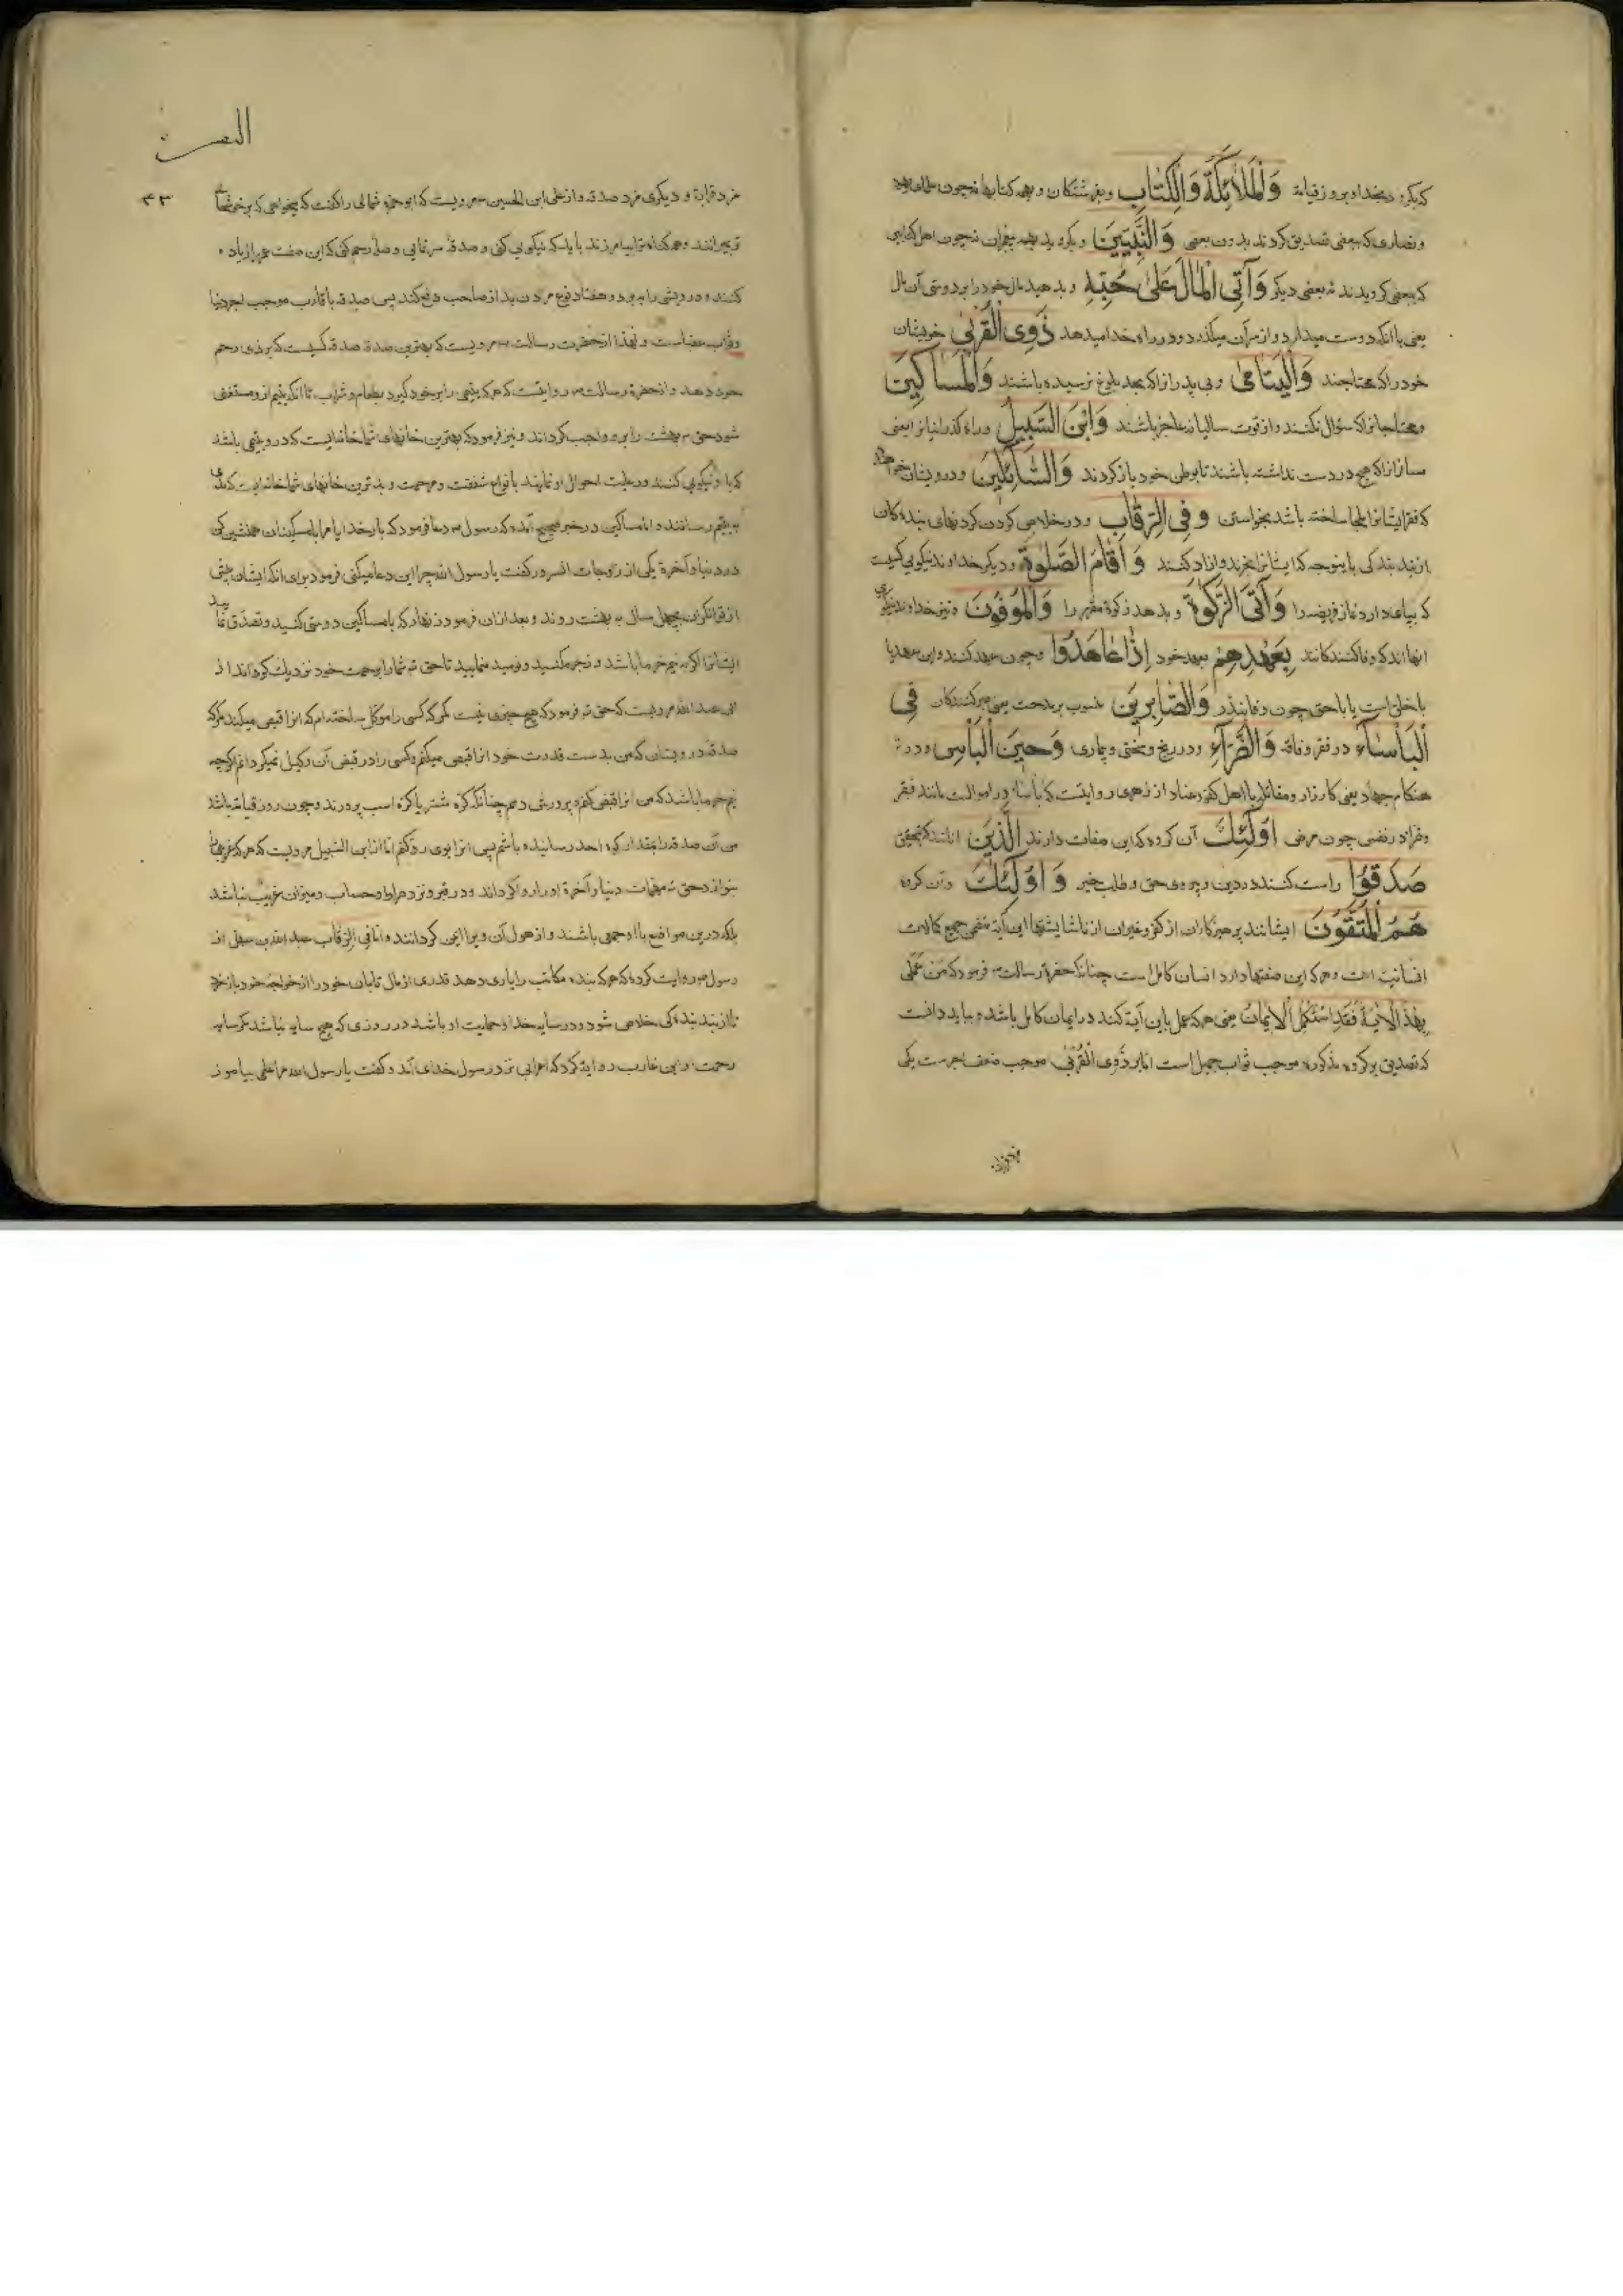 که بگرود بخدا و بروز قیامة وَالْمَلَائِكَةِ وَالْكِتَابِ و بفرشتگان و بهمه کتابها نه چون
و نصاری که ببعضی تصدیق کردند بدون بعضی وَالنَّبِيّينَ و بگرود بهمه پیغمبران نه چون اهل کتاب
که ببعضی گرویدند نه بعضی دیگر وَآتَى الْمَالَ عَلىٰ حُبِّهِ و بدهد مال خود را بر دوستی آن مال
یعنی با آنکه دوست میدارد و از سر آن میگذرد و در راه خدا میدهد ذَوِى الْقُرْبىٰ خویشان
خود را که محتاجند وَالْيَتَامىٰ و بی پدر انرا که بحد بلوغ نرسیده باشند وَالْمَسَاكِينَ
و محتاجانرا که سؤال نکنند و از قوت سالیانه عاجز باشند وَابْنَ السَّبِيلِ و راه کذریانرا یعنی
مسافرانرا که هیچ در دست نداشته باشند تا بوطن خود باز کردند وَالسَّائِلِينَ و درویشان
که فقر ایشانرا ملجا ساخته باشد بخواستن وَفِى الرِّقَابِ و در خلاصی کردن کردنهای بنده کان
از بند بندکی باینوجه که ایشانرا بخرند و ازاد کنند وَأَقَامَ الصَّلٰوةَ و دیکر خداوند نیکویی کسیست
که بپای دارد نماز فریضه را وَآتَى الزَّكٰوةَ و بدهد زکوة مفروضه را وَالْمُوفُونَ و نیز خداوند نیکویی
انهااند که وفا کنندکانند بِعَهْدِهِمْ بعهد خود إِذَا عَاهَدُوا و چون عهد کنند و این عهد یا
با خلق است یا با حق چون وفا بنذر وَالصَّابِرِينَ منصوب بر مدحت یعنی صبر کنندکان فِى
الْبَأْسَاءِ در فقر و فاقه وَالضَّرَّاءِ و در رنج و سختی و بیماری وَحِينَ الْبَأْسِ و در
هنکام جهاد یعنی کارزار و مقاتله با اهل کفر و عناد از زهری روایتست که بأساء در اموالست مانند فقر
و ضراء در نفس چون مرض اُولَٓئِكَ آن کروه که این صفات دارند الَّذِينَ انانند که بتحقیق
صَدَقُوا راست کنندند در دین و پیروی حق و طلب خیر وَاُولَٓئِكَ و آن کروه
هُمُ الْمُتَّقُونَ ایشانند پرهیزکاران از کفر و غیر آن از ناشایستها این آیة مقتضی جمیع کمالات
انسانیت است و هر که این صفتها دارد انسان کامل است چنانکه حضرة رسالت فرمود که مَنْ عَمِلَ
بِهٰذِهِ الْآيَةِ فَقَدِ اسْتَكْمَلَ الْإِيمَانَ یعنی هر که عمل باین آیة کند در ایمان کامل باشد و بباید دانست
که تصدیق بر کروه مذکوره موجب ثواب جمیل است اما بر ذَوِى الْقُرْبىٰ موجب ضعف اجرست یکی
البقرة
۴۳
مزد قرابة و دیکری مزد صدقه و از علی ابن الحسین مرویست که ابو حمزه ثمالی را کفت که میخواهی که
و همه کناهان ترا بیامرزند باید که نیکویی کنی و صدقه سر نمایی و صله رحم کنی که این صفت عمر را زیاده
کنند و درویشی را ببرد و هفتاد نوع مردن بد از صاحب دفع کند پس صدقه با قارب موجب اجر دنیا
و ثواب عقباست و لهذا از حضرت رسالت مرویست که بهترین صدقه صدقه کسیست که بر ذی رحم
خود دهد و از حضرة رسالت روایتست که هر که یتیمی را بر خود کیرد بطعام و شراب تا آنکه یتیم از و مستغنی
شود حق بهشت را بر و واجب کرداند و نیز فرمود که بهترین خانهای شما خانه ایست که در و یتیمی باشد
که با او نیکویی کنند و رعایت احوال او نمایند بانواع شفقت و مرحمت و بدترین خانهای شما خانه ایست که
به یتیم رسانند و اما مساکین در خبر صحیح آمده که رسول دعا فرمود که بار خدایا مرا با مسکینان همنشین کن
در دنیا و آخرة یکی از زوجات انسرور کفت یا رسول الله چرا این دعا میکنی فرمود برای انکه ایشان پیش
از توانکران بچهل سال به بهشت روند و بعد ازان فرمود زنهار که با مساکین دوستی کنید و تصدق
ایشانرا اکر چه نیم خرما باشد و زجر مکنید و نومید منمایید تا حق ته شما را برحمت خود نزدیک کرداند از
ابی عبد الله مرویست که حق ته فرمود که هیچ چیزی نیست مکر که کسی را موکل ساخته ام که انرا قبض میکند مکر که
صدقه درویشان که من بدست قدرت خود انرا قبض میکنم و کسی را در قبض آن وکیل نمیکردانم اکرچه
نیم خرما باشد که من انرا قبض کنم و پرورش دهم چنانکه کره شتر یا کره اسب پرورند و چون روز قیامة باشد
من آن صدقه را بمقدار کوه احد رسانیده باشم پس انرا بوی رد کنم اما ابن السبیل مرویست که هر که غریبی را
بنوازد حق ته مهمات دنیا و آخرة او را روا کرداند و در قبر و نزد صراط و حساب و میزان غریب نباشد
بلکه درین مواضع با او جمعی باشند و از هول آن ویرا ایمن کردانند و اما فی الرقاب عبد الله بن سهل از
رسول روایت کرده که هر که بنده مکاتب را یاری دهد قدری از مال تا بان خود را از خواجه خود باز خرد
تا از بند بندکی خلاص شود و در سایه خدا و حمایت او باشد در روزی که هیچ سایه نباشد مکر سایه
رحمت عازب روایة کرد که اعرابی نزد رسول خدای آمد و کفت یا رسول الله مرا عملی بیاموز